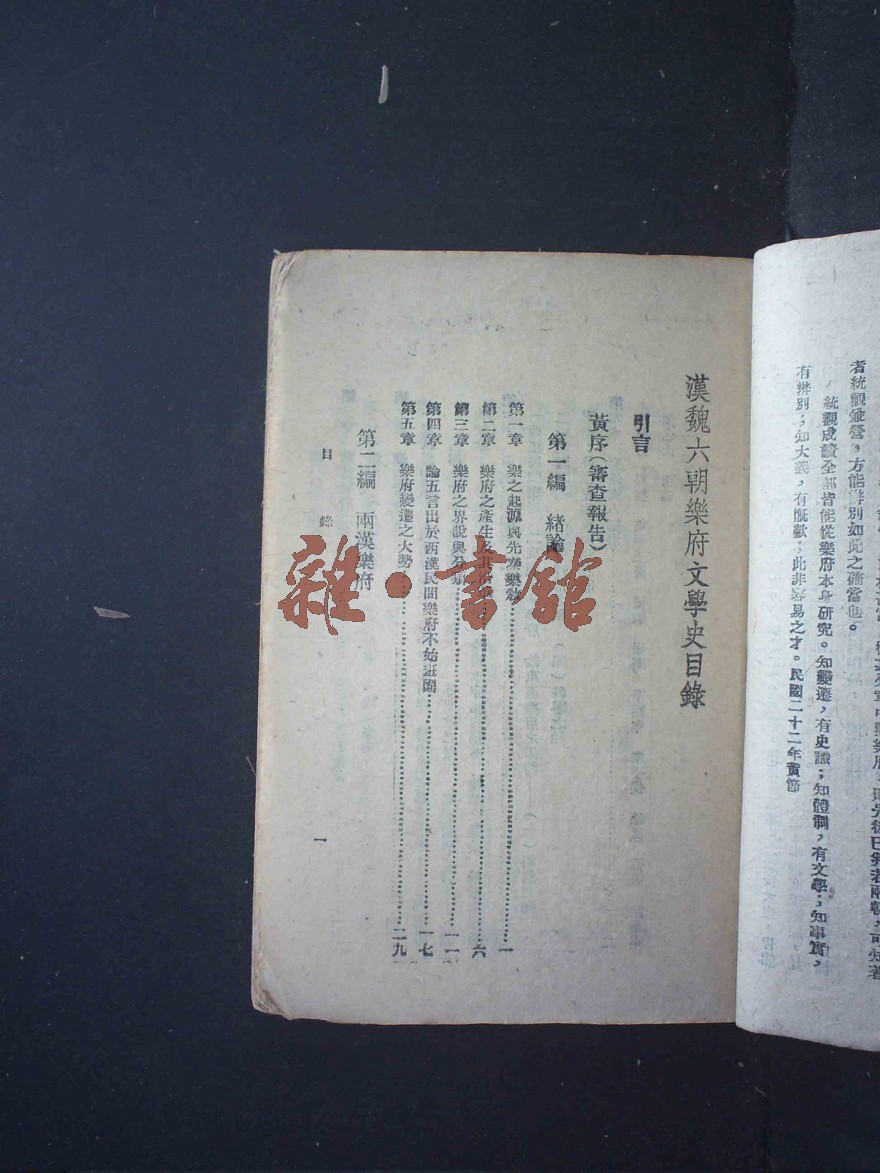 者統觀兼營，方能辨別如此之確當也。
統觀成績全部皆能從樂府本身研究。知變遷，有史識；知體制，有文學；知事實，
有辨別；知大義，有慨歎；此非容易之才。民國二十二年黃節
漢魏六朝樂府文學史目錄
引言
黃序（審查報告）
第一編　緒論
第一章　樂之起源與先秦樂教……一
第二章　樂府之產生及……六
第三章　樂府之界說與分類……一一
第四章　論五言出於西漢民間樂府不始班固……一七
第五章　樂府變遷之大勢……二九
第二編　兩漢樂府
目錄
一
雜·書館